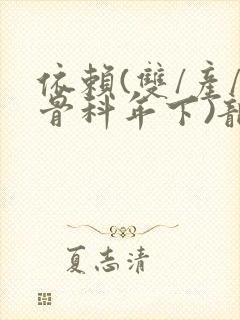 依賴(雙/產/
骨科年下)
夏志清